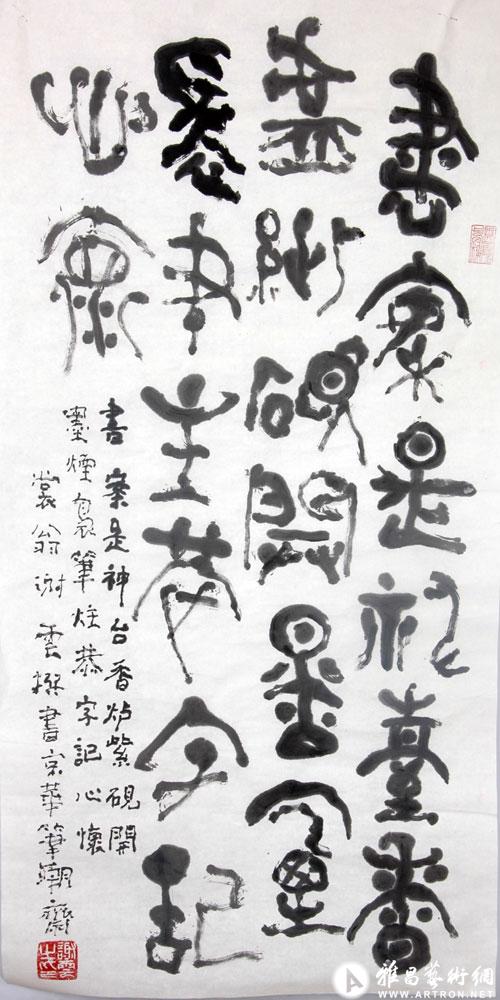 書案是神臺香
盧紫硯開墨煙
裊聿主恭字記
心褱
書案是神台香炉紫硯開
墨煙裊筆炷恭字記心懷
裳翁谢雲撰書京華筆翱齋
雅昌藝術網
WWW.ARTRON.NET